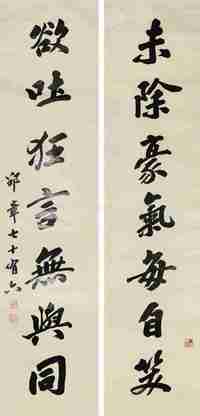 未除豪氣每自笑
欲吐狂言無與同
邵章七十有六